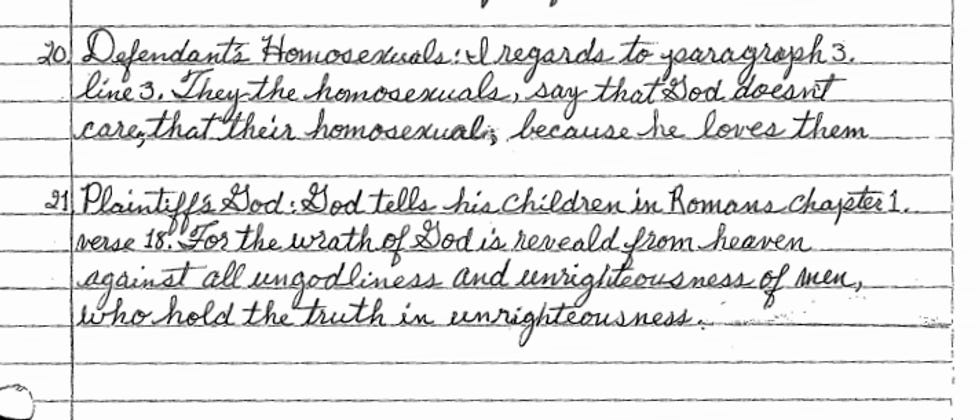 20. Defendant's Homosexuals: I regards to paragraph 3.
line 3. They the homosexuals, say that God doesn't
care, that their homosexuals, because he loves them
21. Plaintiff's God: God tells his children in Romans chapter 1.
verse 18. "For the wrath of God is reveald from heaven
against all ungodliness and unrighteousness of men,
who hold the truth in unrighteousness.